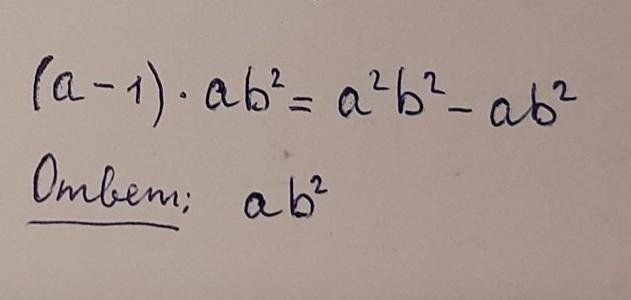 (a-1)·ab²=a²b²-ab²
Ответ: ab²